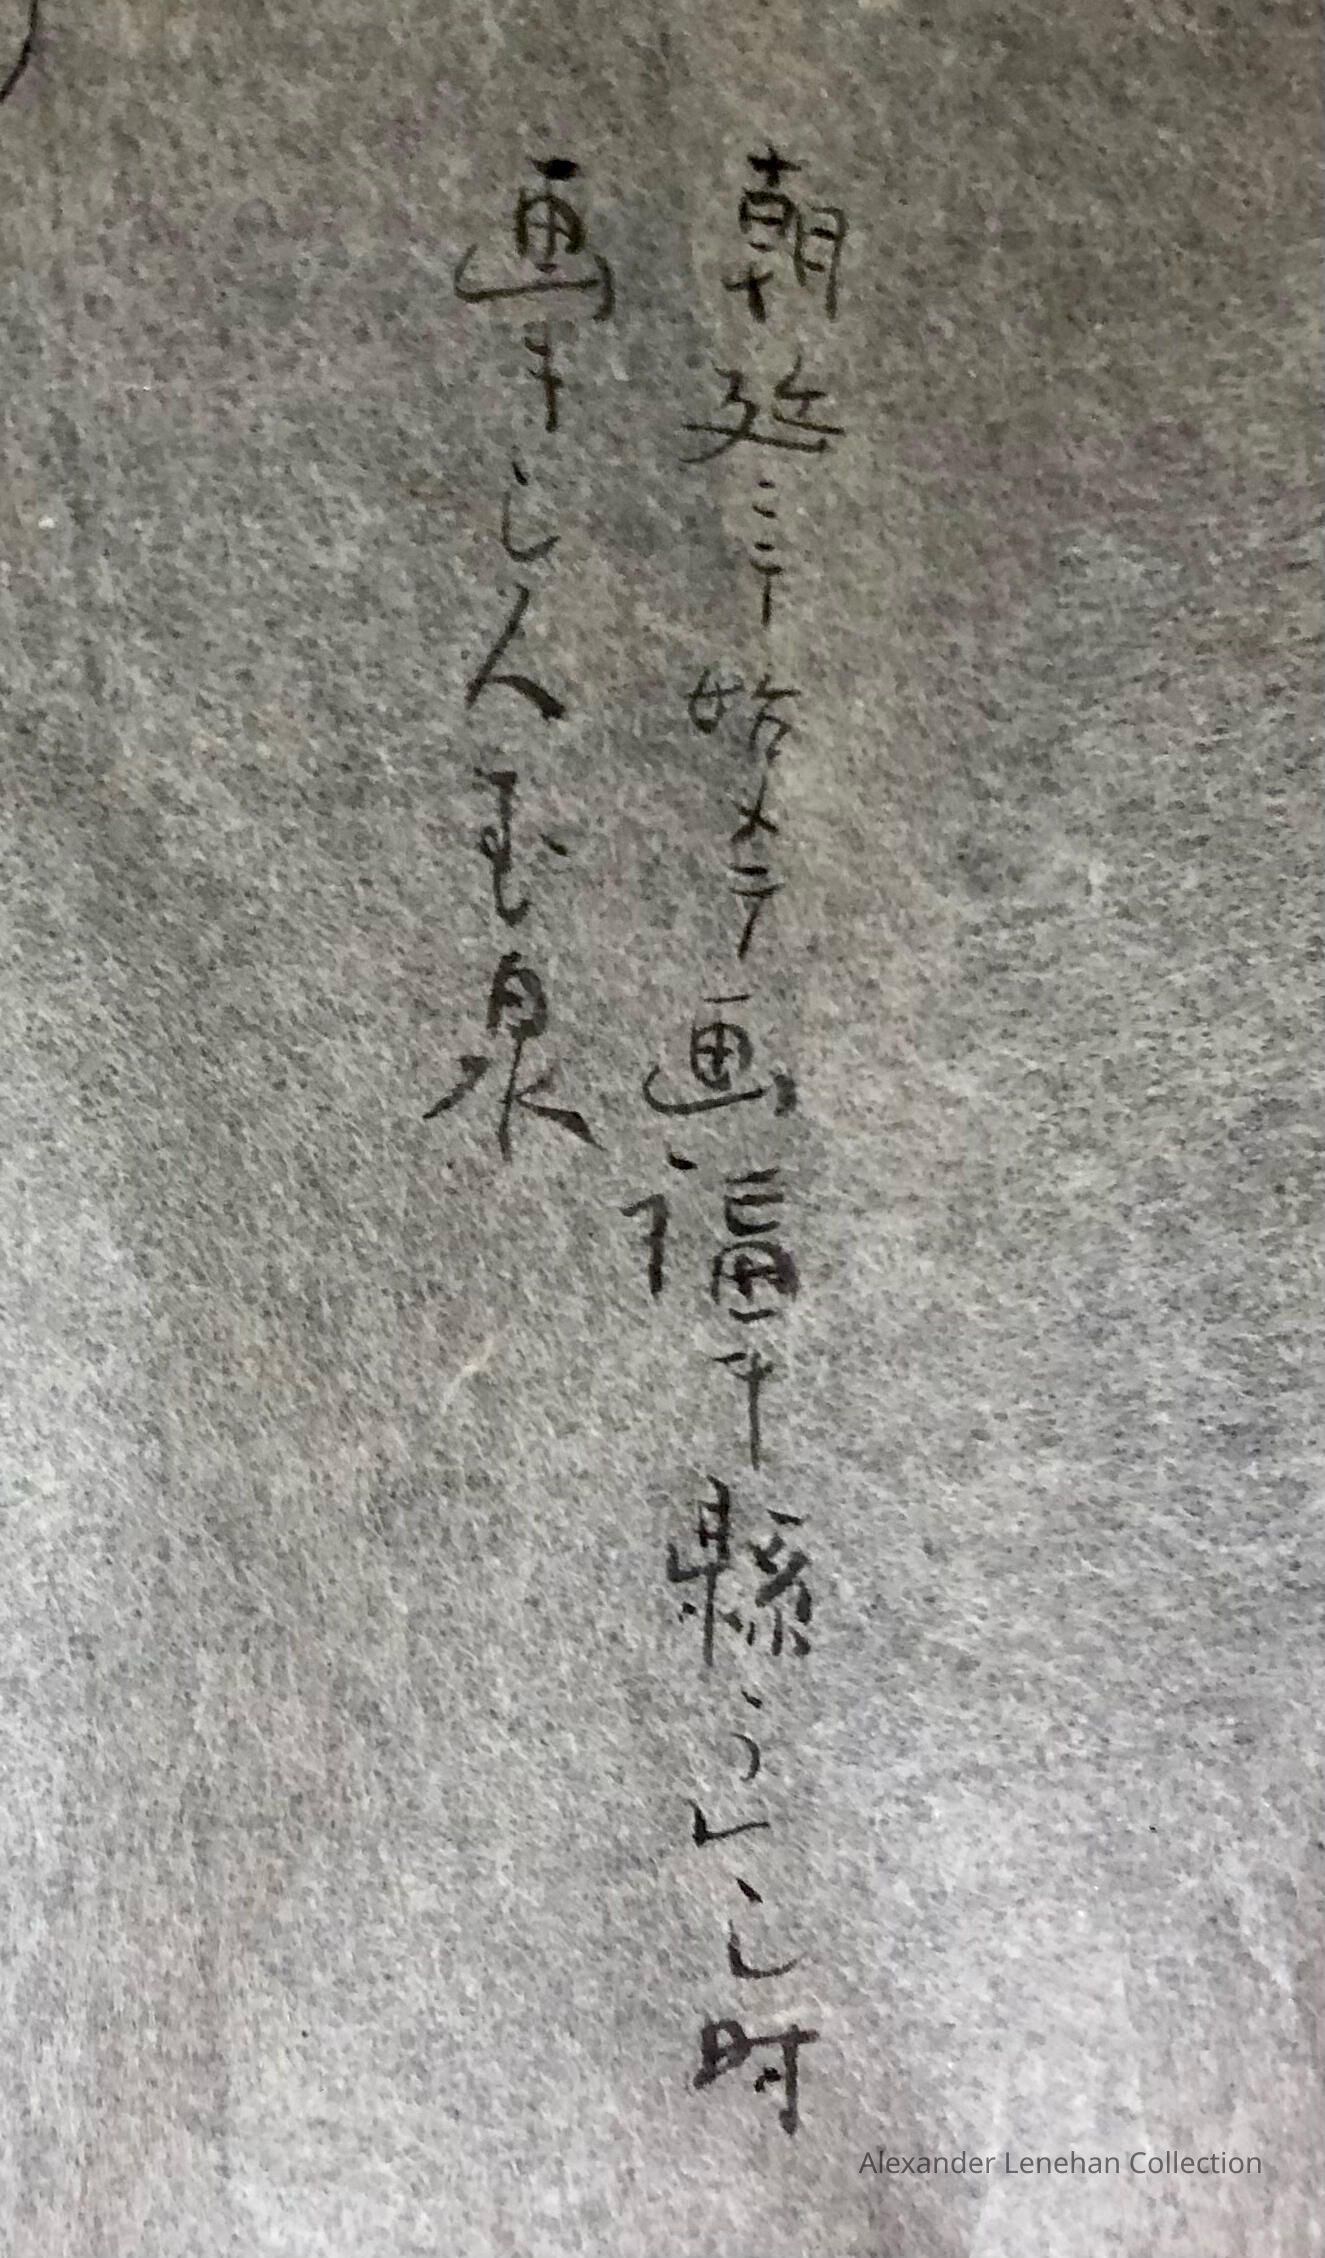 朝廷ニテ始メテ画福ヲ縣うレし時
画キし人玉泉
Alexander Lenehan Collection